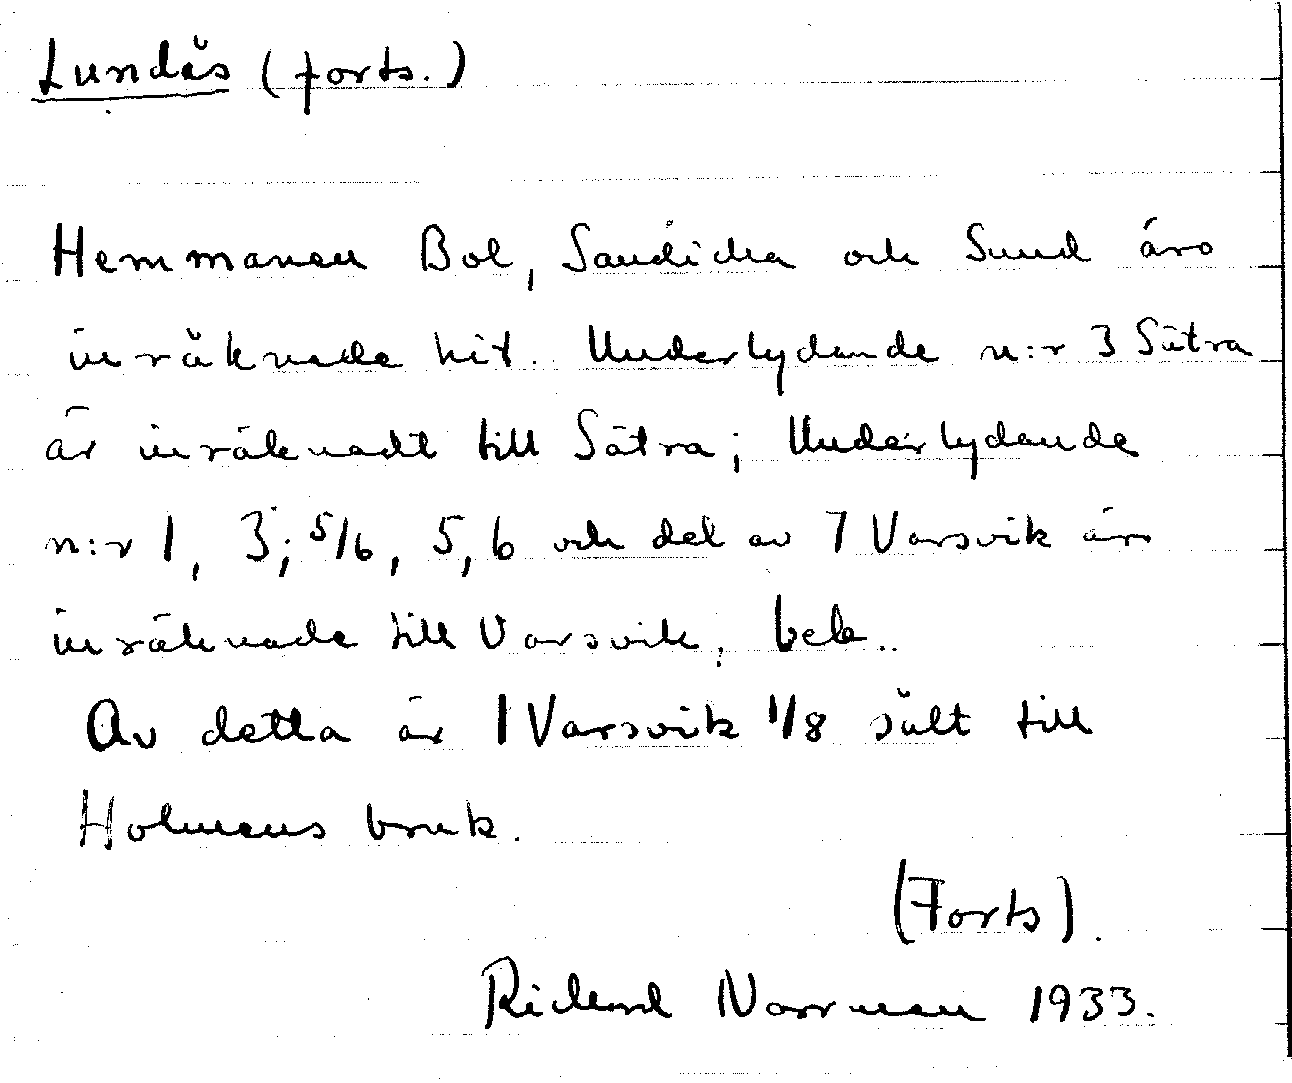 Lundås (forts.)
Hemmanen Bol, Sandicka och Sund äro
inräknade hit. Underlydande n:r 3 Sätra
är inräknadt till Sätra; Underlydande
n:r 1, 3; 5/6, 5, 6 och del av 7 Varsvik äro
inräknade till Varsvik, bela.
Av detta är 1 Varsvik 1/8 sålt till
Holmens bruk.
(Forts).
Richard Norrman 1933.